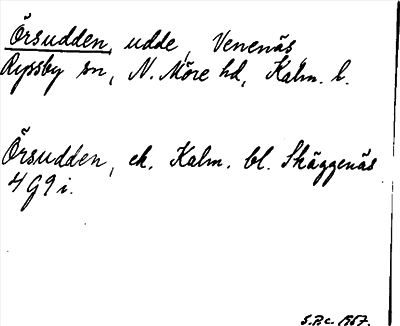 Örsudden, udde, Venenäs,
Ryssby sn, N. Möre hd, Kalm. l.
Örsudden, ek. Kalm. bl. Skäggenäs
4G9i.
S.P.c. 1967.